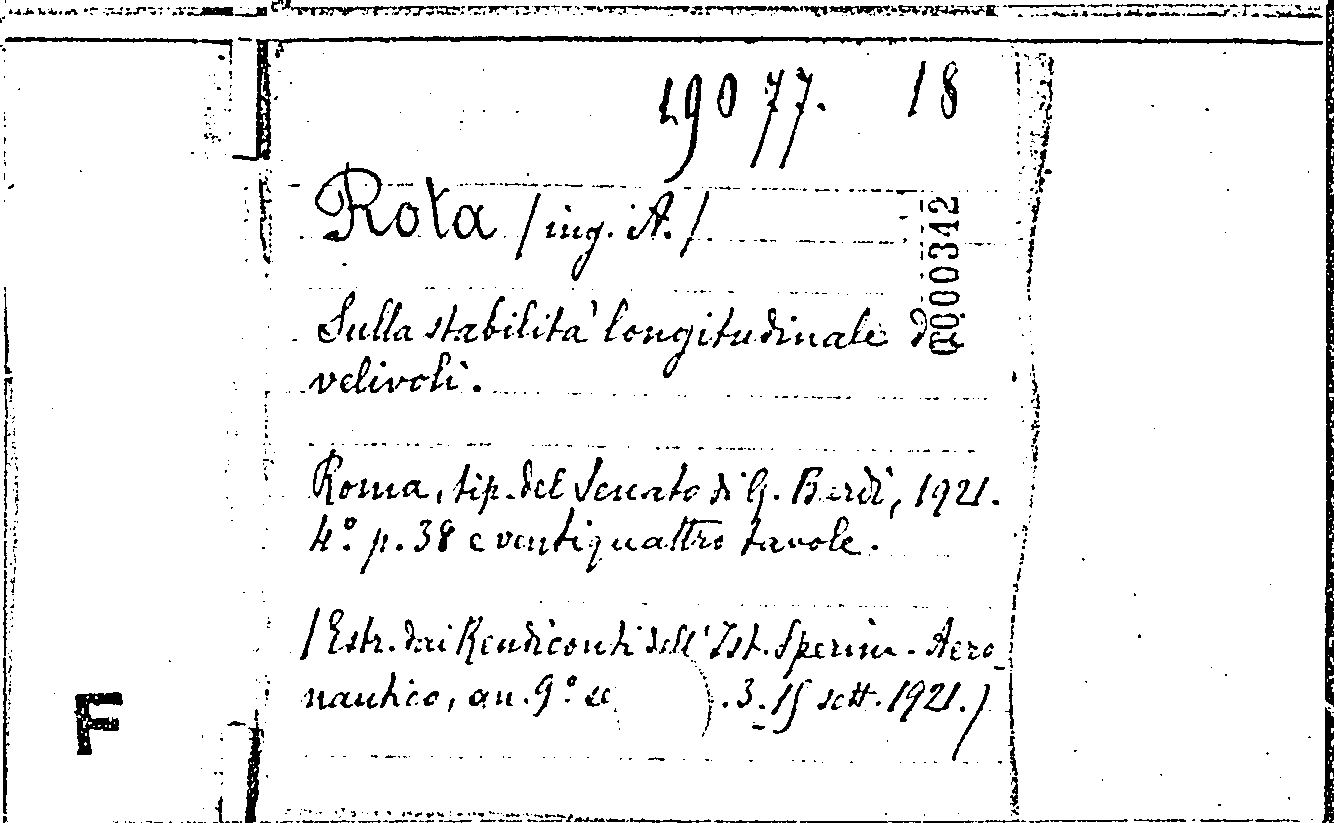 19077. 18
Rota (ing. A.)
0000342
Sulla stabilità longitudinale di
velivoli.
Roma, tip. del Senato di G. Bardi, 1921.
4.° p. 38 e ventiquattro tavole.
(Estr. dai Rendiconti dell'Ist. Sperim. Aero-
nautico, an. 9.° se . 3. 15 sett. 1921.)
F